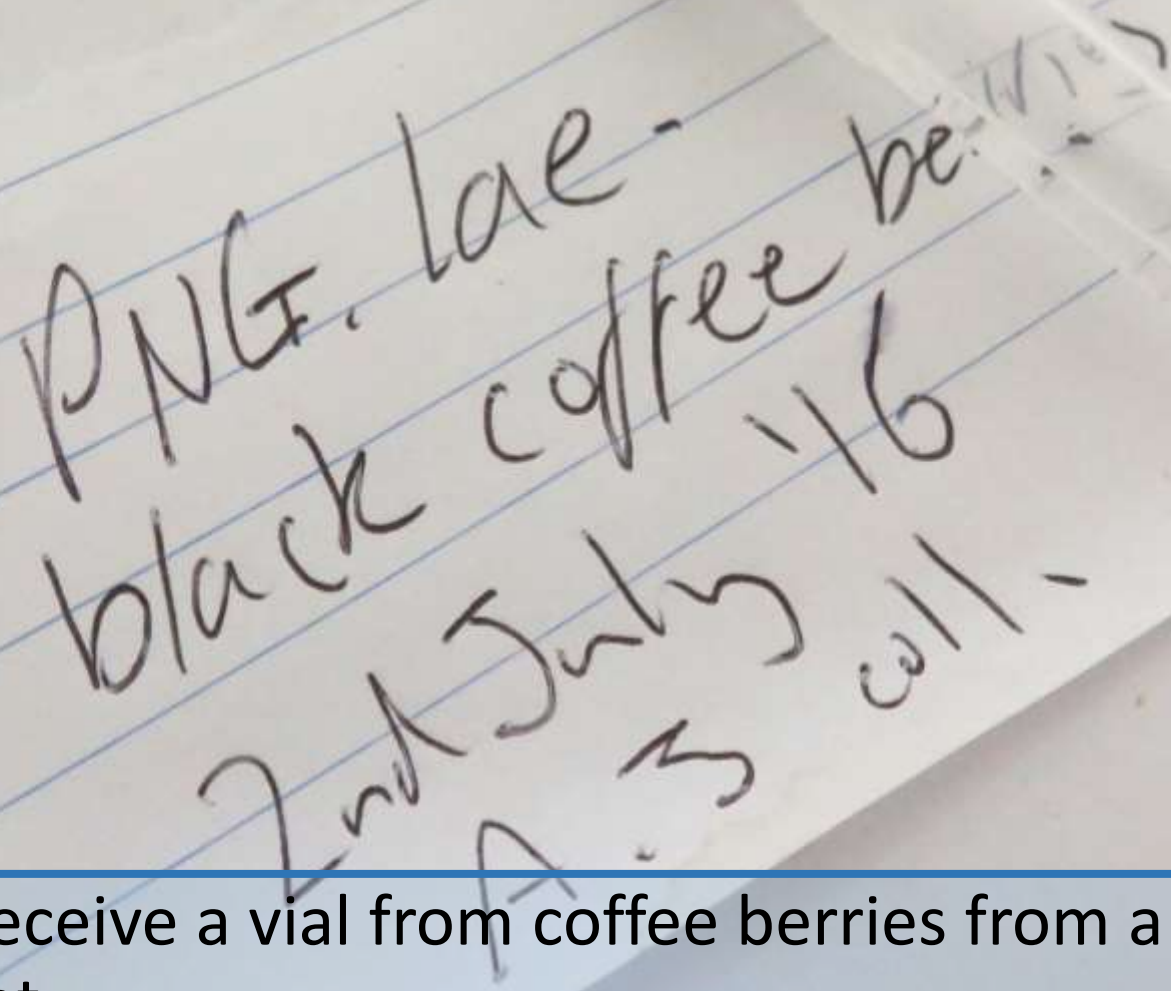 PNG. lae -
black coffee be
2nd July '16
A. coll -
eceive a vial from coffee berries from a